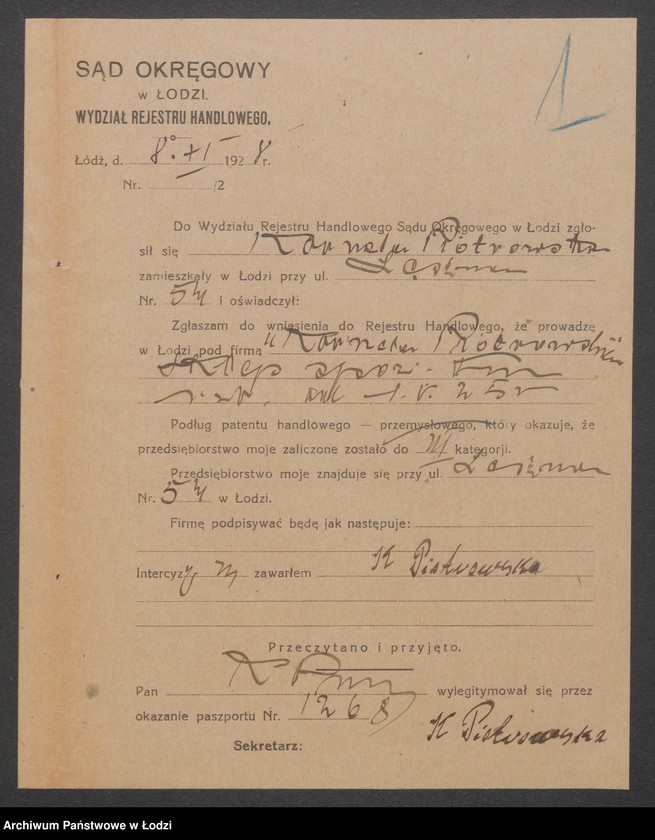 1
SĄD OKRĘGOWY
w ŁODZI.
WYDZIAŁ REJESTRU HANDLOWEGO.
Łódź, d. 8.XI 1928 r.
Nr. /2
Do Wydziału Rejestru Handlowego Sądu Okręgowego w Łodzi zgło-
sił się Piotrowska
zamieszkały w Łodzi przy ul.
Nr. 54 i oświadczył:
Zgłaszam do wniesienia do Rejestru Handlowego, że prowadzę
w Łodzi pod firmą "
Sklep
od 1.V.25r
Podług patentu handlowego — przemysłowego, który okazuje, że
przedsiębiorstwo moje zaliczone zostało do III kategorji.
Przedsiębiorstwo moje znajduje się przy ul.
Nr. 54 w Łodzi.
Firmę podpisywać będę jak następuje:
Intercyzy zawarłem K Piotrowska
Przeczytano i przyjęto.
Pan wylegitymował się przez
okazanie paszportu Nr. 1268
K Piotrowska
Sekretarz:
Archiwum Państwowe w Łodzi